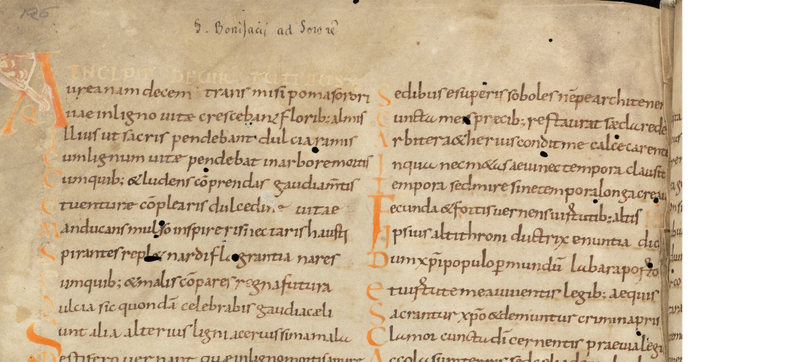 126
S. Bonifacij ad Sororē
INCIPIT DE VIRTUTIBUS
Aurea nam decem transmisi poma sorori
uae in ligno uitæ crescebant floribus almis
Illius ut sacris pendebant dulcia ramis
um lignum uitæ pendebat in arbore mortis
Cum quib: & ludens cōprendis gaudia mentis
tuenturæ cōplearis dulcedine uitae
Manducans multo inspireris nectaris haustu
Spirantes replet nardi flagrantia nares
Cumquib: & malis cōpares regna futura
ulcia sic quondā celebrabis gaudia cæli
Sunt alia alterius ligni acerbissima mala
Pestifero uernant quæ in ligno mortis amaræ
Sedibus e superis soboles nēpe architenen
Cuncta meis precib: restaurat sæcula rede
Arbitera & herus condit me calce carenti
Inqua nec metas aeui nec tempora clausit
Tempora sed mire sine tempora longa creaui
Fecunda & fortis uernens uirtutib: altis
Ipsius altithroni ductrix enuntia dic
Dum xp̄i populo p mundū labara porto
& uirtute mea uiuentis legib: aequis
Sacrantur xpō & demuntur crimina pris
Clamor cunctu di cernentis praeua legi